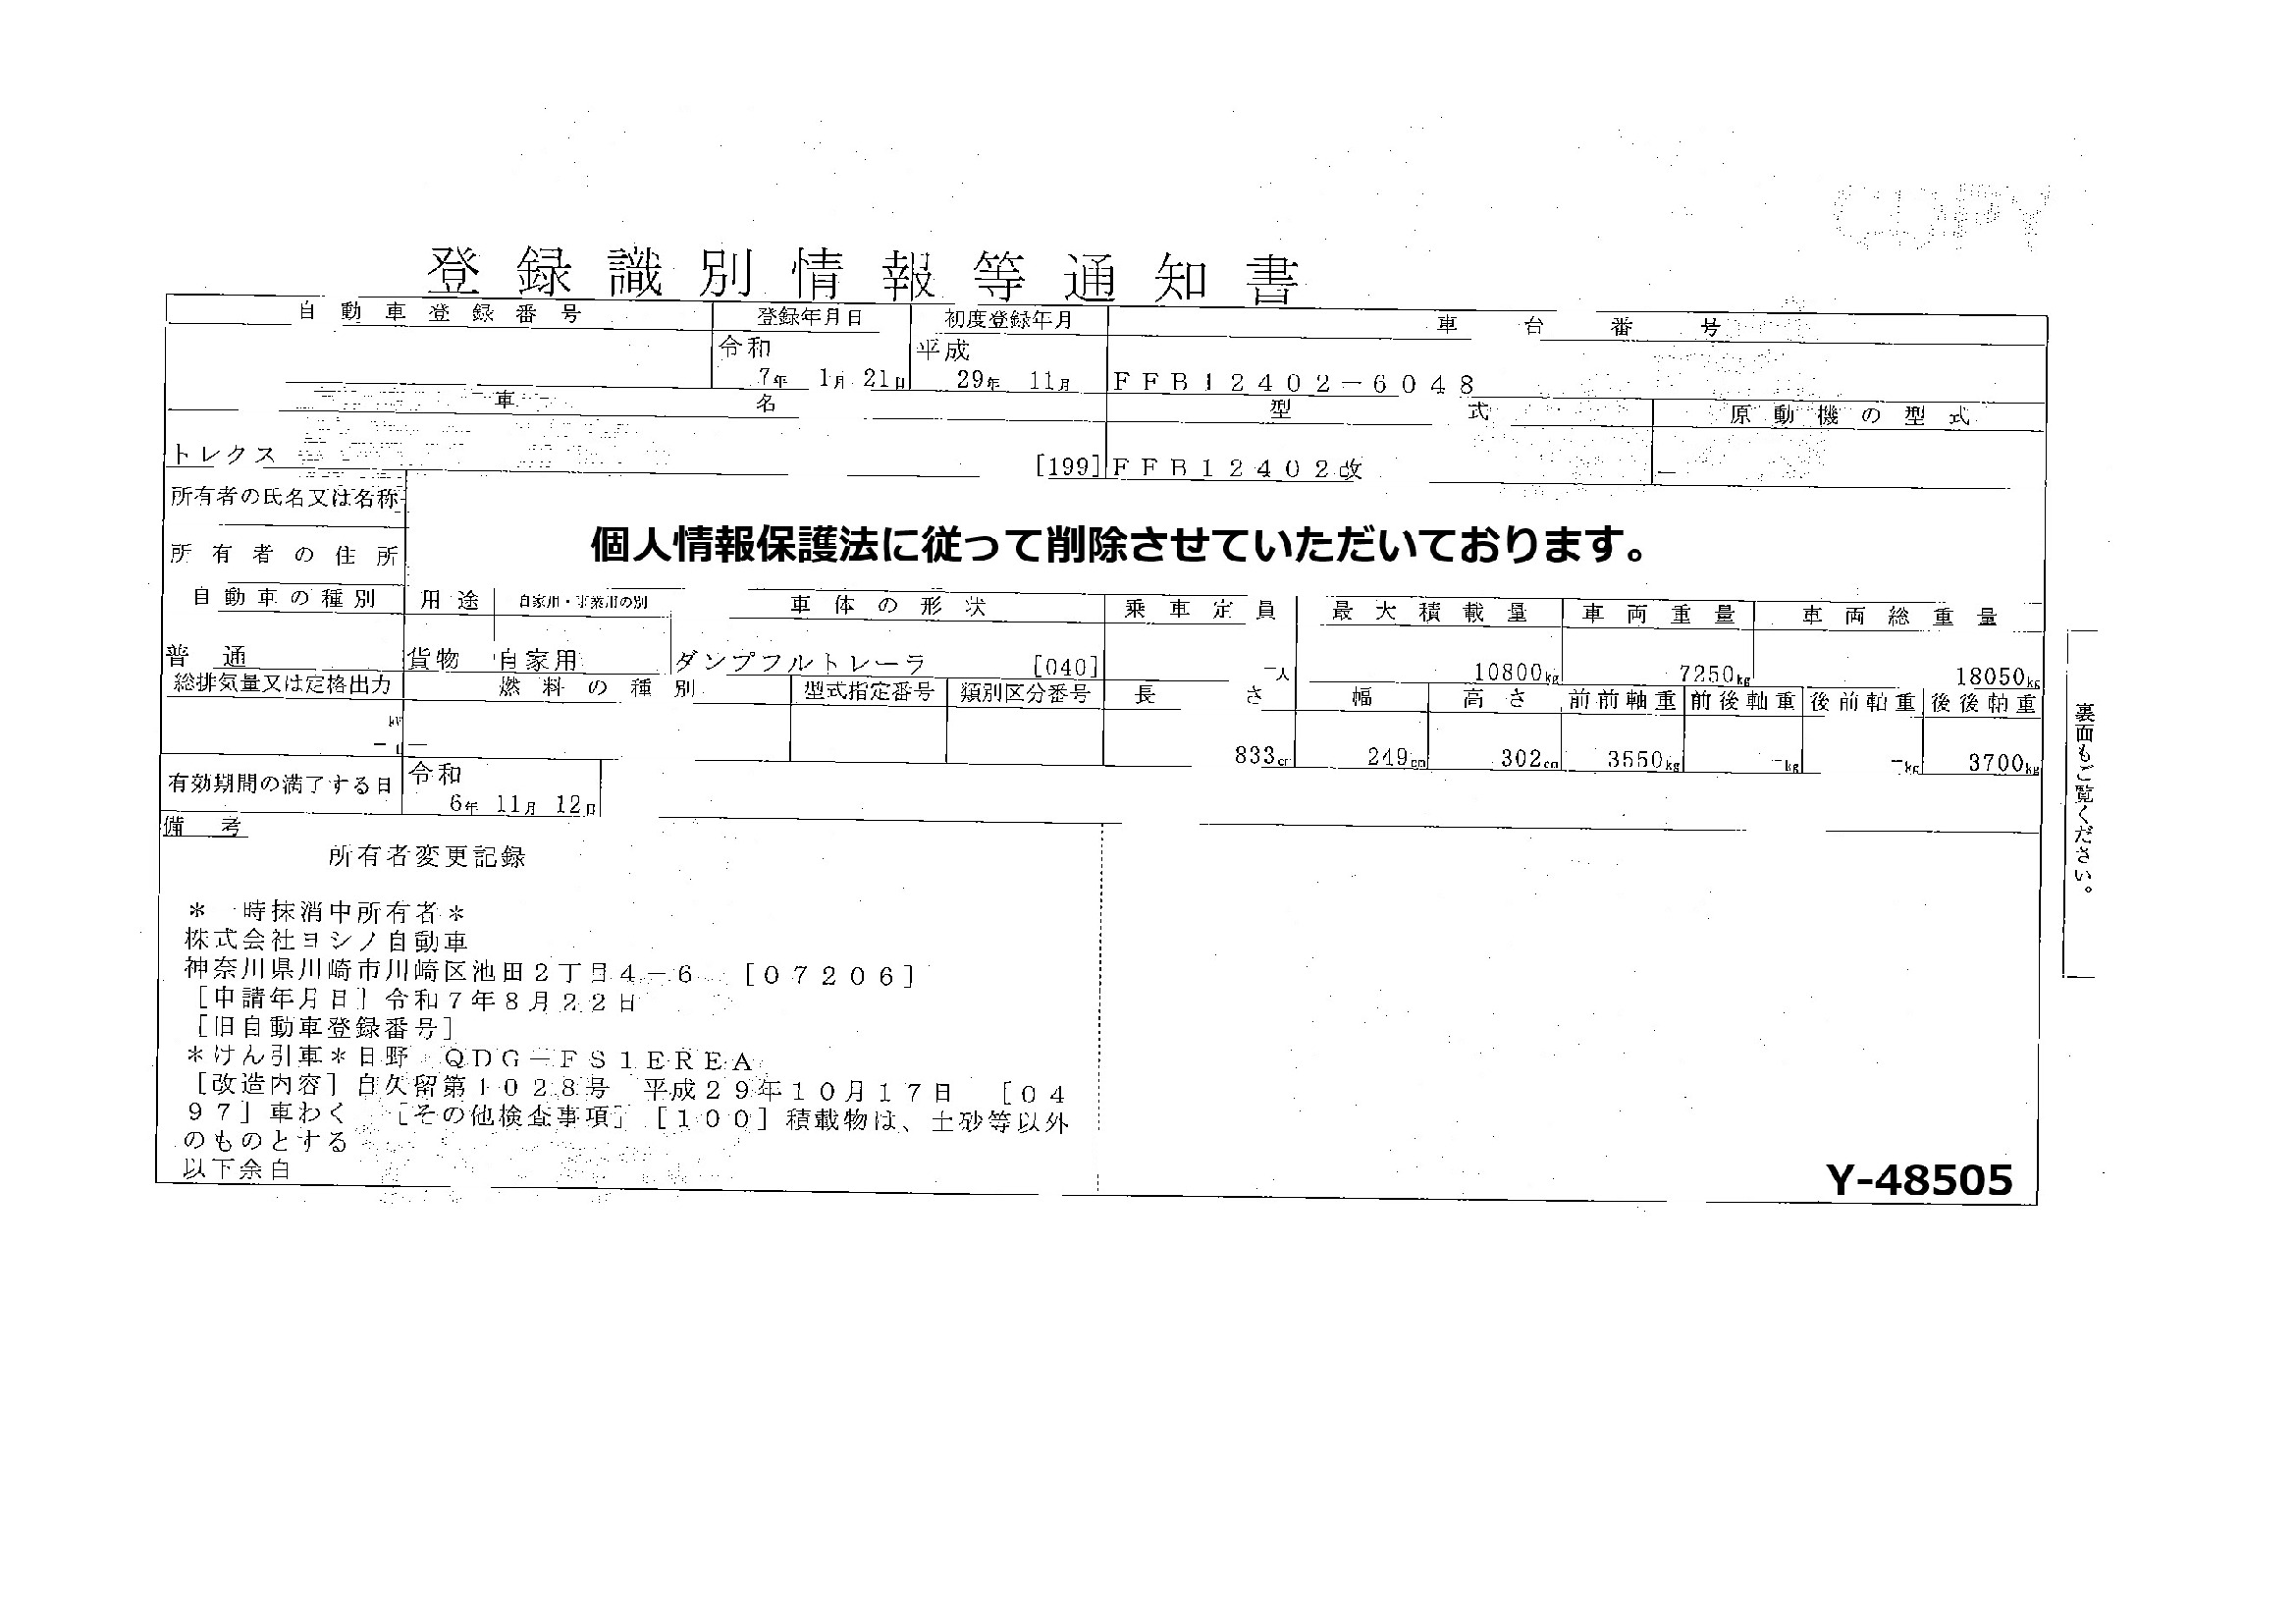 COPY
登録識別情報等通知書
自動車登録番号 登録年月日 初度登録年月 車台番号
令和 平成
7年 1月 21日 29年 11月 FFB12402-6048
車名 型式 原動機の型式
トレクス [199] FFB12402改 -
所有者の氏名又は名称
個人情報保護法に従って削除させていただいております。
所有者の住所
自動車の種別 用途 自家用・事業用の別 車体の形状 乗車定員 最大積載量 車両重量 車両総重量
普通 貨物 自家用 ダンプフルトレーラ [040] -人 10800kg 7250kg 18050kg
総排気量又は定格出力 燃料の種別 型式指定番号 類別区分番号 長さ 幅 高さ 前前軸重 前後軸重 後前軸重 後後軸重
kW
- L - 833cm 249cm 302cm 3550kg -kg -kg 3700kg
有効期間の満了する日 令和
6年 11月 12日
備考
所有者変更記録
*一時抹消中所有者*
株式会社ヨシノ自動車
神奈川県川崎市川崎区池田2丁目4-6 [07206]
[申請年月日]令和7年8月22日
[旧自動車登録番号]
*けん引車*日野 QDG-FS1EREA
[改造内容]自久留第1028号 平成29年10月17日 [04
97]車わく [その他検査事項] [100]積載物は、土砂等以外
のものとする
以下余白
裏面もご覧ください。
Y-48505